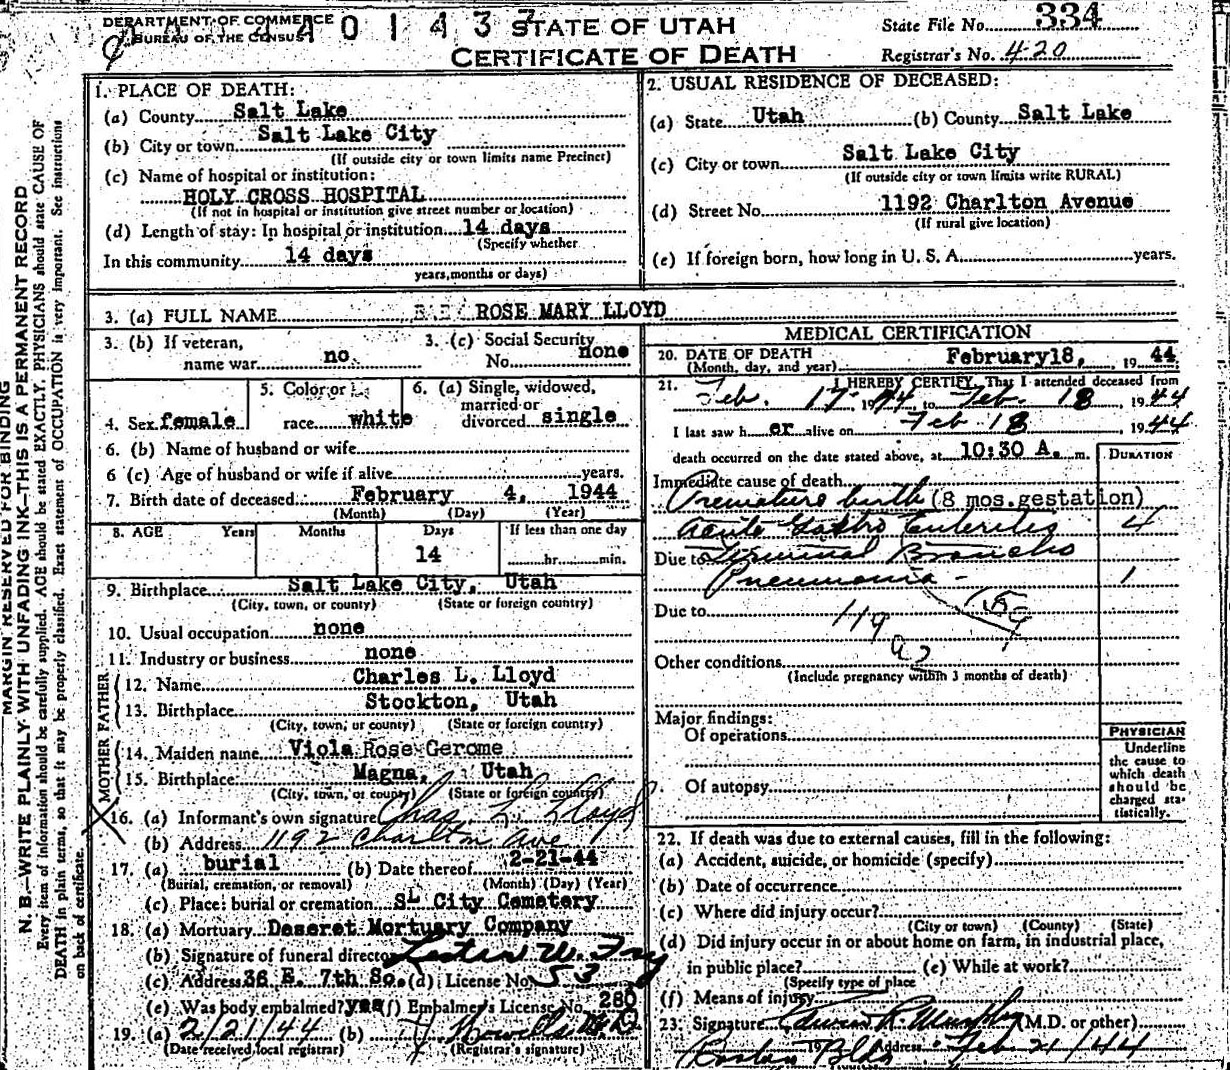 DEPARTMENT OF COMMERCE
BUREAU OF THE CENSUS
4 0 1 4 3 7
STATE OF UTAH
CERTIFICATE OF DEATH
State File No. 334
Registrar's No. 420
MARGIN RESERVED FOR BINDING
N. B.—WRITE PLAINLY WITH UNFADING INK—THIS IS A PERMANENT RECORD
Every item of information should be carefully supplied. AGE should be stated EXACTLY. PHYSICIANS should state CAUSE OF
DEATH in plain terms, so that it may be properly classified. Exact statement of OCCUPATION is very important. See instructions
on back of certificate.
1. PLACE OF DEATH:
(a) County Salt Lake
(b) City or town Salt Lake City
(If outside city or town limits name Precinct)
(c) Name of hospital or institution:
HOLY CROSS HOSPITAL
(If not in hospital or institution give street number or location)
(d) Length of stay: In hospital or institution 14 days
(Specify whether
In this community 14 days
years, months or days)
2. USUAL RESIDENCE OF DECEASED:
(a) State Utah (b) County Salt Lake
(c) City or town Salt Lake City
(If outside city or town limits write RURAL)
(d) Street No. 1192 Charlton Avenue
(If rural give location)
(e) If foreign born, how long in U. S. A. years.
3. (a) FULL NAME ROSE MARY LLOYD
3. (b) If veteran,
name war no
3. (c) Social Security
No. none
4. Sex female
5. Color or
race white
6. (a) Single, widowed,
married or
divorced single
6. (b) Name of husband or wife
6 (c) Age of husband or wife if alive years.
7. Birth date of deceased: February 4, 1944
(Month) (Day) (Year)
8. AGE Years Months Days If less than one day
14
hr. min.
9. Birthplace Salt Lake City, Utah
(City, town, or county) (State or foreign country)
10. Usual occupation none
11. Industry or business none
FATHER
12. Name Charles L. Lloyd
13. Birthplace Stockton, Utah
(City, town, or county) (State or foreign country)
MOTHER
14. Maiden name Viola Rose Gerome
15. Birthplace Magna, Utah
(City, town, or county) (State or foreign country)
X
16. (a) Informant's own signature Chas. L. Lloyd
(b) Address 1192 Charlton Ave
17. (a) burial (b) Date thereof 2-21-44
(Burial, cremation, or removal) (Month) (Day) (Year)
(c) Place: burial or cremation SL City Cemetery
18. (a) Mortuary Deseret Mortuary Company
(b) Signature of funeral director Lester W. Fry
(c) Address 36 E. 7th So. (d) License No. 53
(e) Was body embalmed? yes (f) Embalmer's License No. 280
19. (a) 2/21/44 (b) M.D.
(Date received local registrar) (Registrar's signature)
MEDICAL CERTIFICATION
20. DATE OF DEATH February 18, 1944
(Month, day, and year)
21. I HEREBY CERTIFY, That I attended deceased from
Feb. 17 1944 to Feb. 18, 1944
I last saw her alive on Feb 18, 1944
death occurred on the date stated above, at 10:30 A. m.
DURATION
Immediate cause of death
Premature birth (8 mos. gestation)
Acute Gastro Enteritis 4
Due to Terminal Broncho
Pneumonia - 1
Due to 119 159
Other conditions
(Include pregnancy within 3 months of death)
Major findings:
Of operations
Of autopsy
PHYSICIAN
Underline
the cause to
which death
should be
charged sta-
tistically.
22. If death was due to external causes, fill in the following:
(a) Accident, suicide, or homicide (specify)
(b) Date of occurrence
(c) Where did injury occur?
(City or town) (County) (State)
(d) Did injury occur in or about home on farm, in industrial place,
in public place? (e) While at work?
(Specify type of place
(f) Means of injury
23. Signature Edwin R. Murphy (M.D. or other)
Boston Bldg Address Feb 21/44